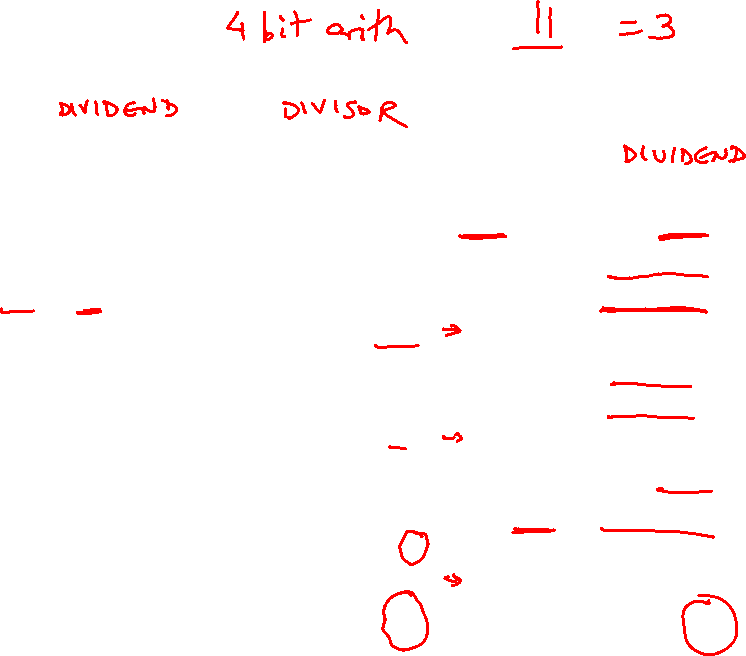 4 bit arith 11 = 3
DIVIDEND DIVISOR
DIVIDEND